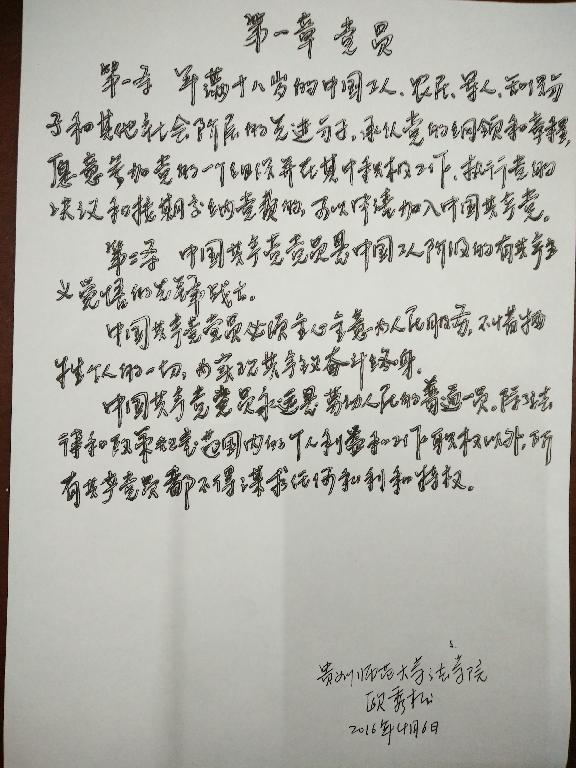 第一章 党员
第一条 年满十八岁的中国工人、农民、军人、知识分
子和其他社会阶层的先进分子,承认党的纲领和章程,
愿意参加党的一个组织并在其中积极工作、执行党的
决议和按期交纳党费的,可以申请加入中国共产党。
第二条 中国共产党党员是中国工人阶级的有共产主
义觉悟的先锋战士。
中国共产党党员必须全心全意为人民服务,不惜牺
牲个人的一切,为实现共产主义奋斗终身。
中国共产党党员永远是劳动人民的普通一员。除了法
律和政策规定范围内的个人利益和工作职权以外,所
有共产党员都不得谋求任何私利和特权。
贵州师范大学法学院
欧秀松
2016年4月6日